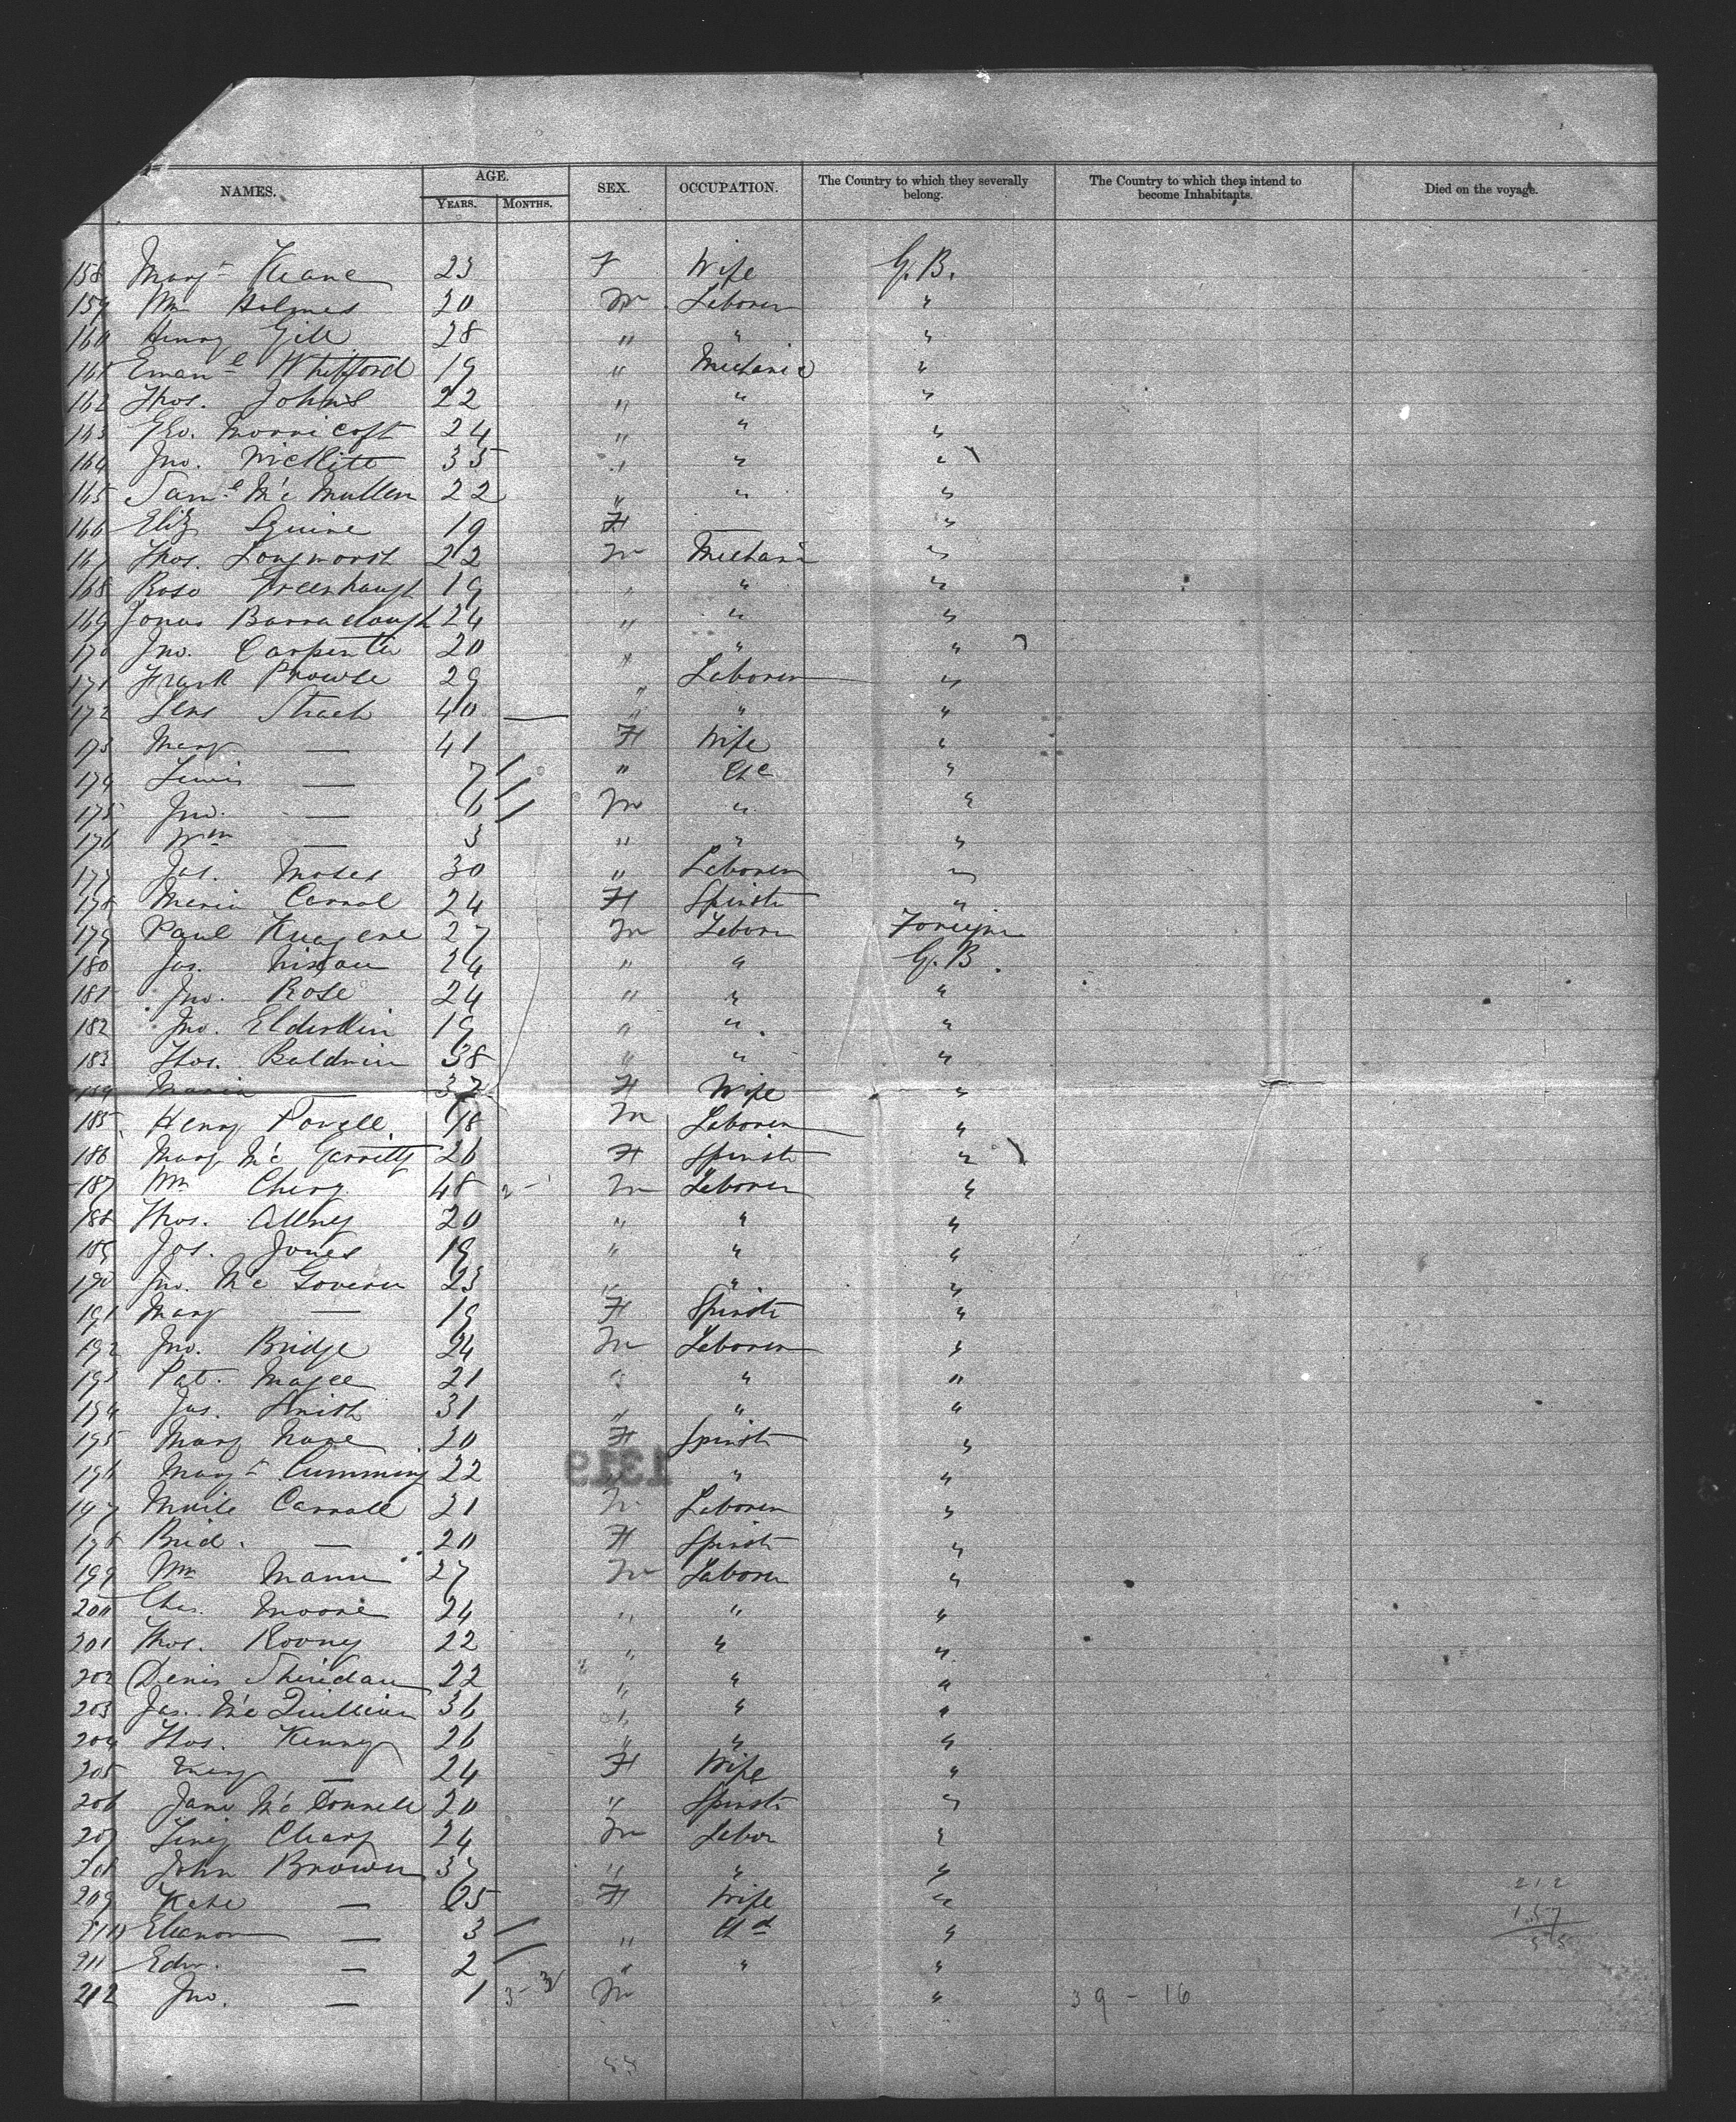 NAMES. AGE. SEX. OCCUPATION. The Country to which they severally belong. The Country to which they intend to become Inhabitants. Died on the voyage.
YEARS. MONTHS.
158 Margt Keane 23 F Wife G. B.
159 Wm Holmes 30 M Laborer "
160 Henry Gill 28 " " "
161 Emanl Whifford 19 " Mechanic "
162 Thos. Johns 22 " " "
163 Geo. 24 " " "
164 Jno. 35 " " "
165 Saml Mc Mullen 22 " " "
166 Eliz Squire 19 F — "
167 Thos. Longworth 22 M Mechani "
168 Rose Greenhaugh 19 " " "
169 Jonas Barraclough 24 " " "
170 Jno. Carpenter 20 " " "
171 Frank Prowse 29 " Laborer "
172 40 — " " "
173 Mary — 41 F Wife "
174 Lewis — 7 " "
175 Jno. — 6 M " "
176 Wm — 3 " " "
177 Jas. Moses 30 " Laborer "
178 Maria Carrol 24 F Spinstr "
179 Paul 27 M Laborer Foreign
180 Jas. 24 " " G. B.
181 Jno. Rose 24 " " "
182 Jno. Elderkin 19 " " "
183 Thos. Baldwin 38 " " "
184 Maria — 32 F Wife "
185 Henry Powell 18 M Laborer "
186 Mary Mc Garritty 26 F Spinstr "
187 Wm 48 M Laborer "
188 Thos. 20 " " "
189 Jos. Jones 19 " " "
190 Jno. Mc Govern 23 " " "
191 Mary — 19 F Spinstr "
192 Jno. Bridge 24 M Laborer "
193 Pat. Magee 21 " " "
194 Jas. Smith 31 " " "
195 Mary 20 F Spinstr "
1319
196 Margt Cumming 22 " " "
197 Carroll 21 M Laborer "
198 Brid. — 20 F Spinstr "
199 Wm Mann 27 M Laborer "
200 Chas. Moore 24 " " "
201 Thos. Rooney 22 " " "
202 Denis Sheridan 22 " " "
203 Jas. Mc Quillian 36 " " "
204 Thos. Kenny 26 " " "
205 Mary — 24 F Wife "
206 Jane Mc Donnell 20 " Spinstr "
207 24 M Labor "
208 John Brown 37 " " "
209 Kate — 25 F Wife " 212
210 Eleanor — 3 " Chd " 157
211 Edw. — 2 " " " 55
212 Jno. — 1 M " 39 - 16
55